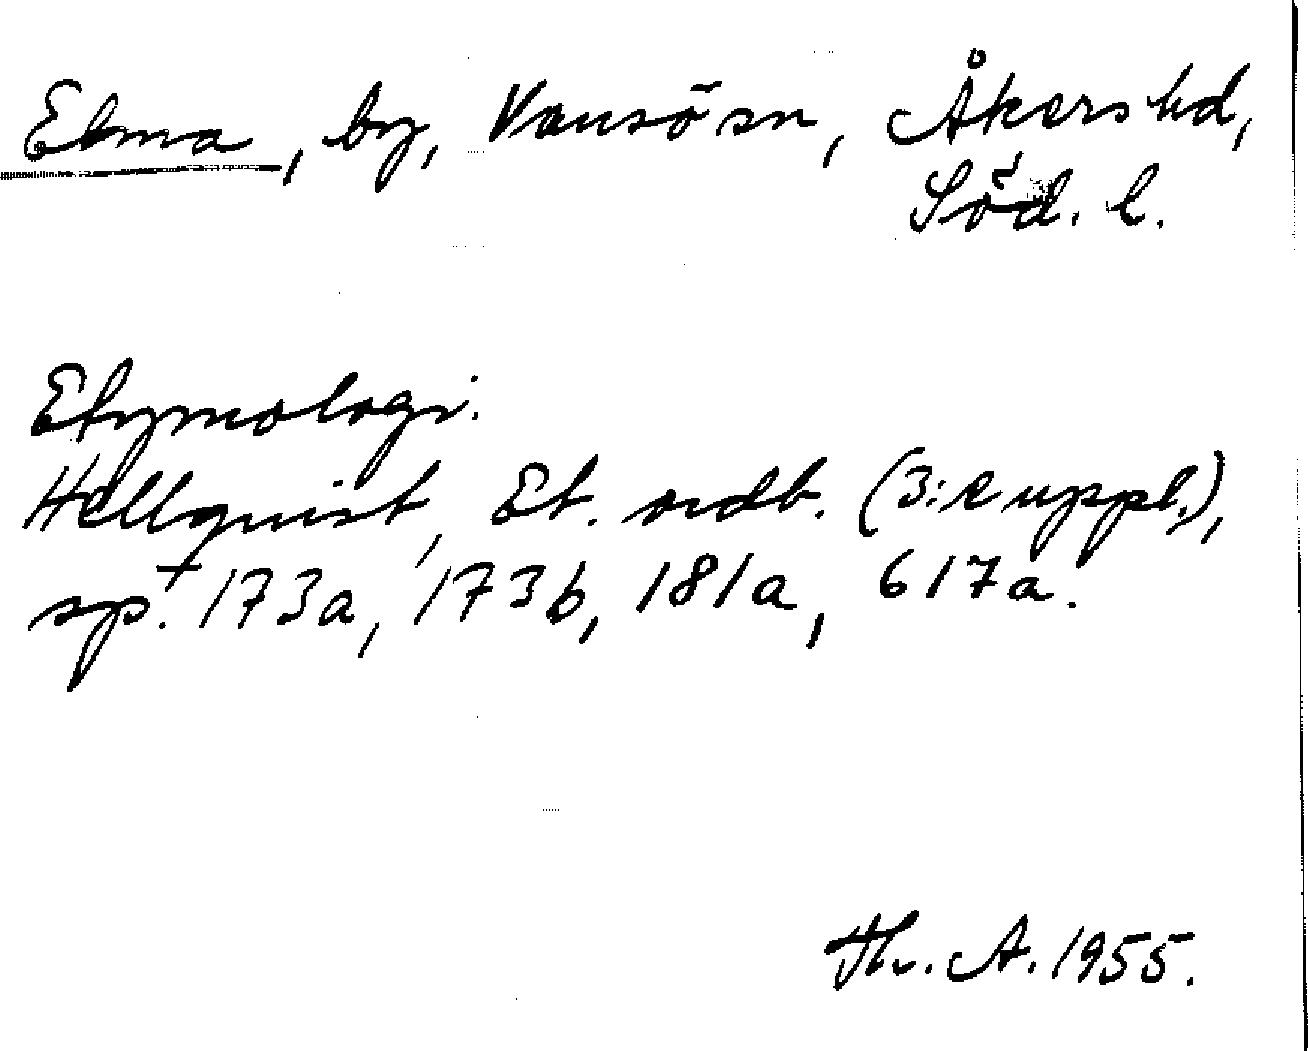 Elma, by, Vansö sn, Åkers hd,
Söd. l.
Etymologi.
Hellquist, Et. ordb. (3:e uppl.),
sp. 173a, 173b, 181a, 617a.
Th. A. 1955.